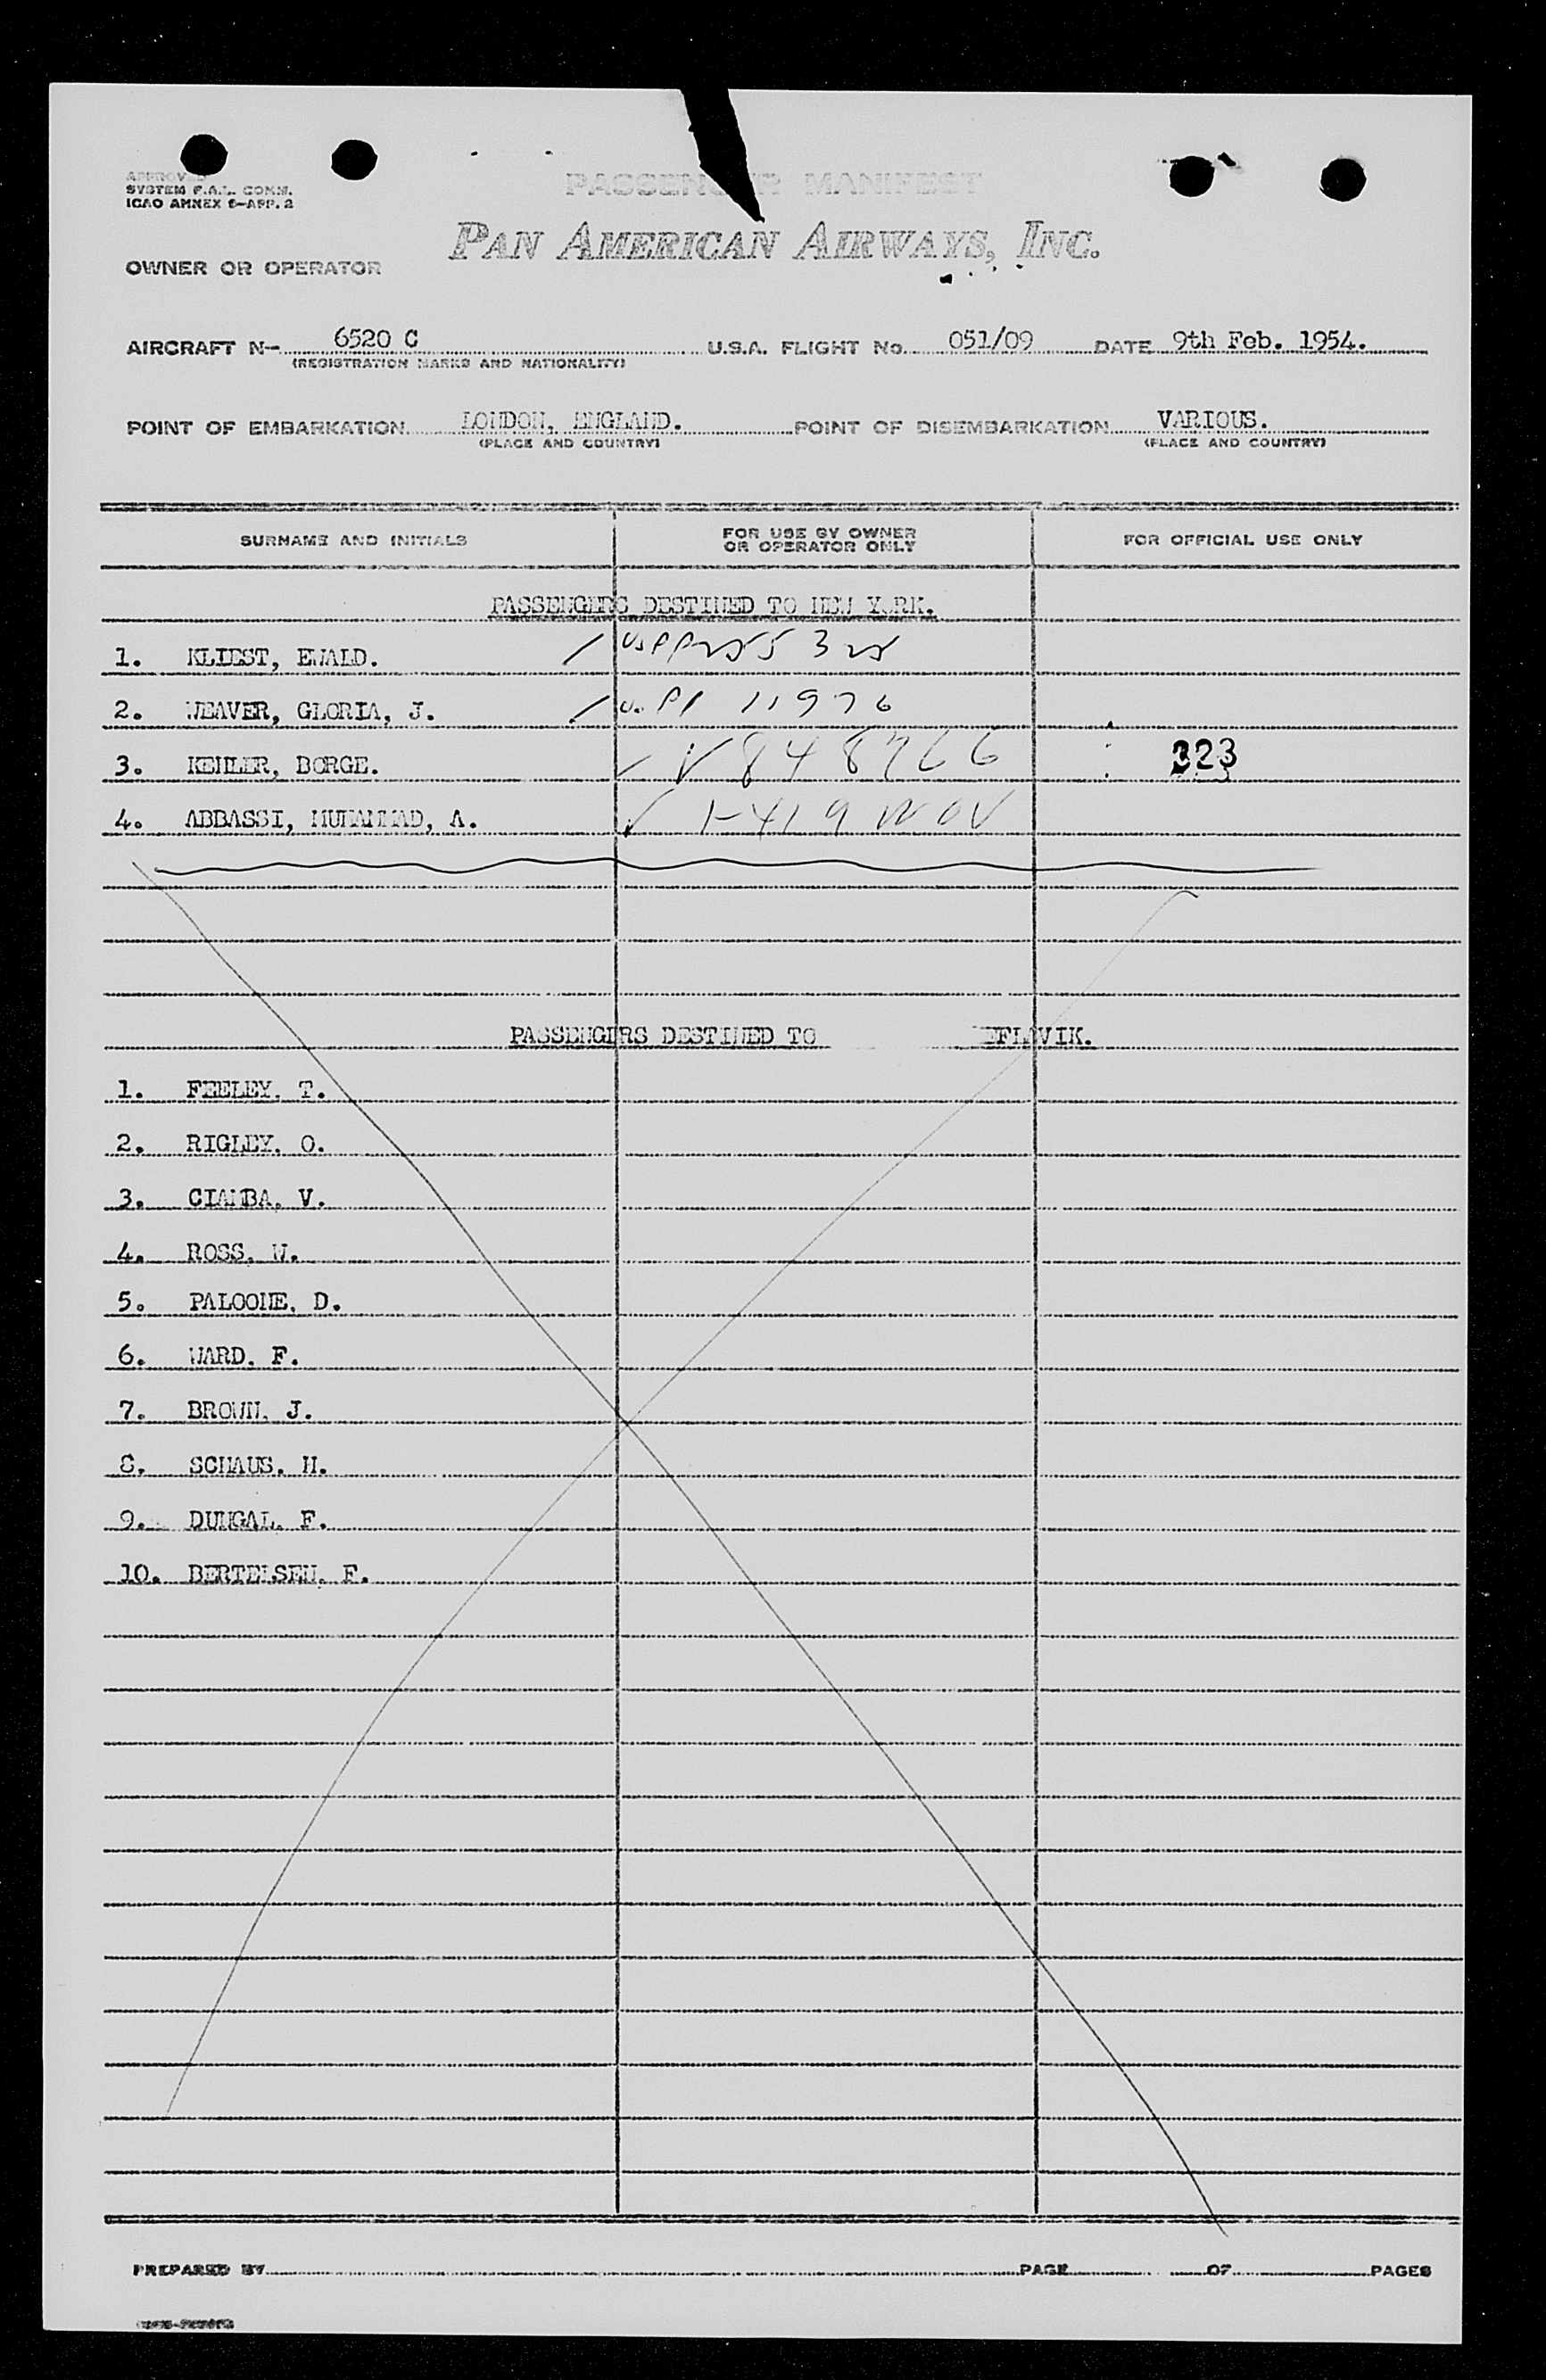 SYSTEM F.A.L. COMM.
ICAO ANNEX 9-APP. 2
PASSENGER MANIFEST
PAN AMERICAN AIRWAYS, INC.
OWNER OR OPERATOR
AIRCRAFT N- 6520 C U.S.A. FLIGHT No. 051/09 DATE 9th Feb. 1954.
(REGISTRATION MARKS AND NATIONALITY)
POINT OF EMBARKATION LONDON, ENGLAND. POINT OF DISEMBARKATION VARIOUS.
(PLACE AND COUNTRY) (PLACE AND COUNTRY)
SURNAME AND INITIALS FOR USE BY OWNER OR OPERATOR ONLY FOR OFFICIAL USE ONLY
PASSENGERS DESTINED TO NEW YORK.
1. KLIEST, EWALD.
2. WEAVER, GLORIA, J. 11976
3. KEHLER, BORGE. V 848766 323
4. ABBASSI, MUHAMMAD, A.
PASSENGERS DESTINED TO EFLAVIK.
1. FEELEY. T.
2. RIGLEY. O.
3. CIAMBA, V.
4. ROSS, W.
5. PALOONE, D.
6. WARD. F.
7. BROWN. J.
8. SCHAUS. H.
9. DUNGAL. F.
10. BERTELSEN. F.
PREPARED BY PAGE OF PAGES